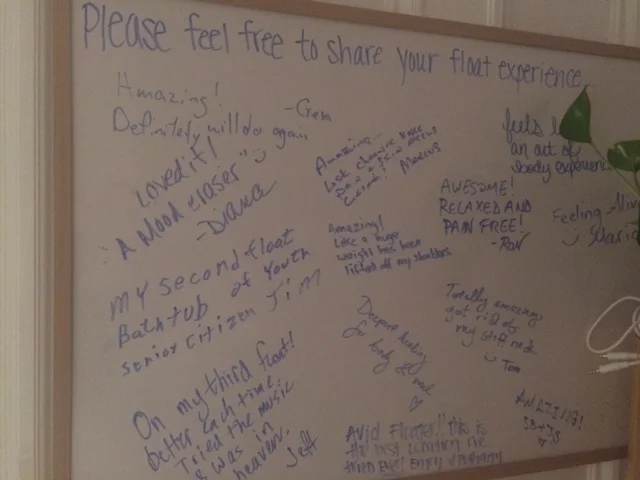 Please feel free to share your float experience
Amazing!
Definitely will do again
- Gem
Loved it!
"A Mood eraser"
- Diana
Amazing
Marcus
feels
an act of
body experience
AWESOME!
RELAXED AND
PAIN FREE!
- Ron
Feeling
Amazing!
Like a huge
weight has been
lifted off my shoulders
MY second float
Bathtub of Youth
Senior Citizen Jim
Totally amazing
got rid of
my stiff neck
Tom
Deepest healing
for body & soul
On my third float!
better each time.
Tried the music
& was in
heaven.
Jeff
AMAZING!
Avid Floater!! this is
the best location I've
tried ever! Enjoy